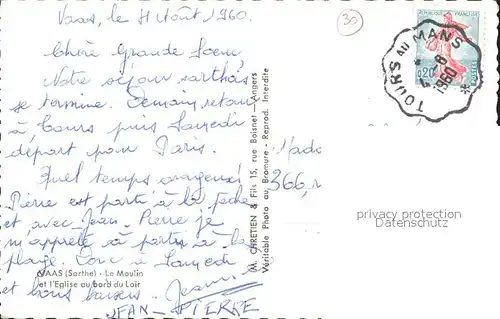 Vaas, le 4 Août 1960.
30
Chère Grande Soeur,
Notre séjour sarthois
se termine. Demain, retour
à Tours puis Samedi
départ pour Paris.
Quel temps orageux!
Pierre est parti à la pêche
et avec Jean-Pierre je
m'apprête à partir à la
plage. Donc à Samedi
et bons baisers. Jeanne
JEAN-PIERRE
VAAS (Sarthe) - Le Moulin
et l'Eglise au bord du Loir
M. CHRETIEN & Fils 15, rue Boisnet - Angers
Véritable Photo au Bromure - Reprod. Interdite
REPUBLIQUE FRANÇAISE
0,20
POSTES
TOURS AU MANS
1960
366,
privacy protection
Datenschutz